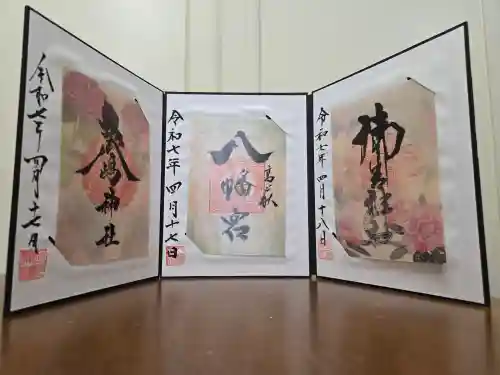 令和七年 四月十七日
嶋神社
令和七年 四月十七日
八幡宮
令和七年 四月十八日
神社